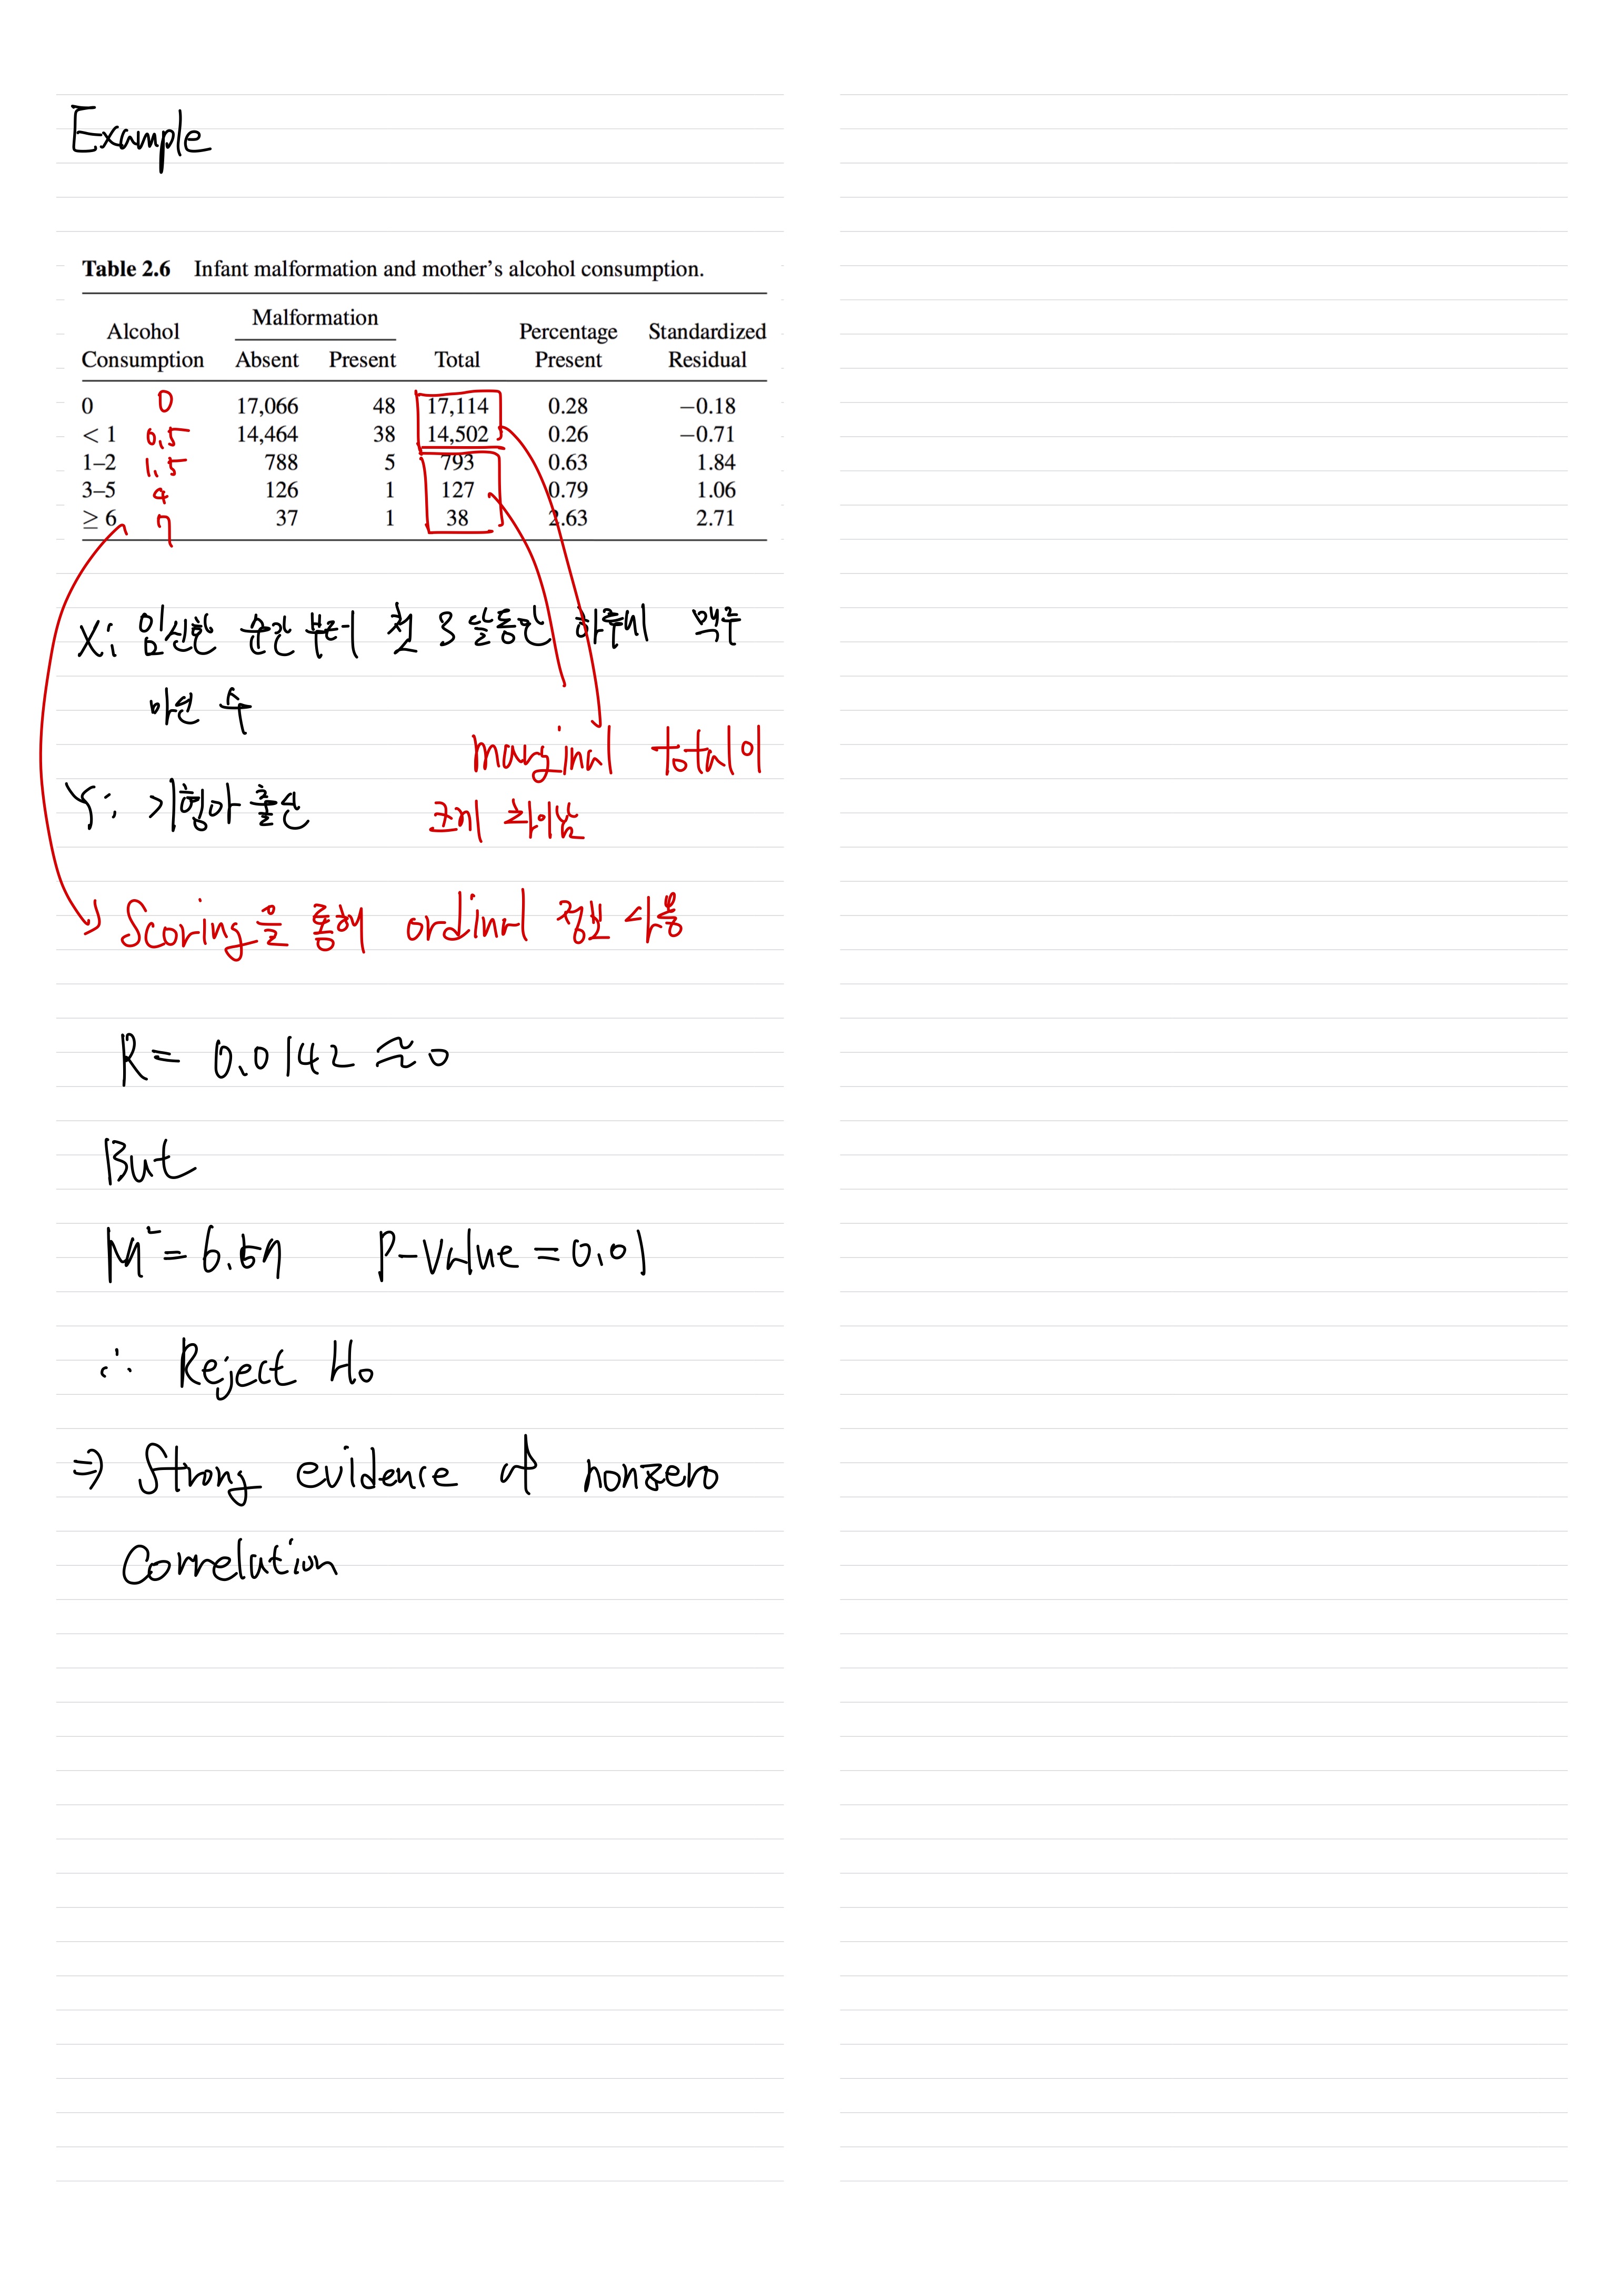 Example
Table 2.6 Infant malformation and mother's alcohol consumption.
Malformation
Alcohol Percentage Standardized
Consumption Absent Present Total Present Residual
0 0 17,066 48 17,114 0.28 −0.18
< 1 0.5 14,464 38 14,502 0.26 −0.71
1–2 1.5 788 5 793 0.63 1.84
3–5 4 126 1 127 0.79 1.06
≥ 6 7 37 1 38 2.63 2.71
X: 임신한 순간 부터 첫 3달동안 하루에 맥주
마신 수
marginal total이
Y: 기형아 출산
크게 차이남
→ Scoring을 통해 ordinal 정보 사용
R = 0.0142 ≈ 0
But
M² = 6.57 P-value = 0.01
∴ Reject H₀
⇒ Strong evidence of nonzero
Correlation